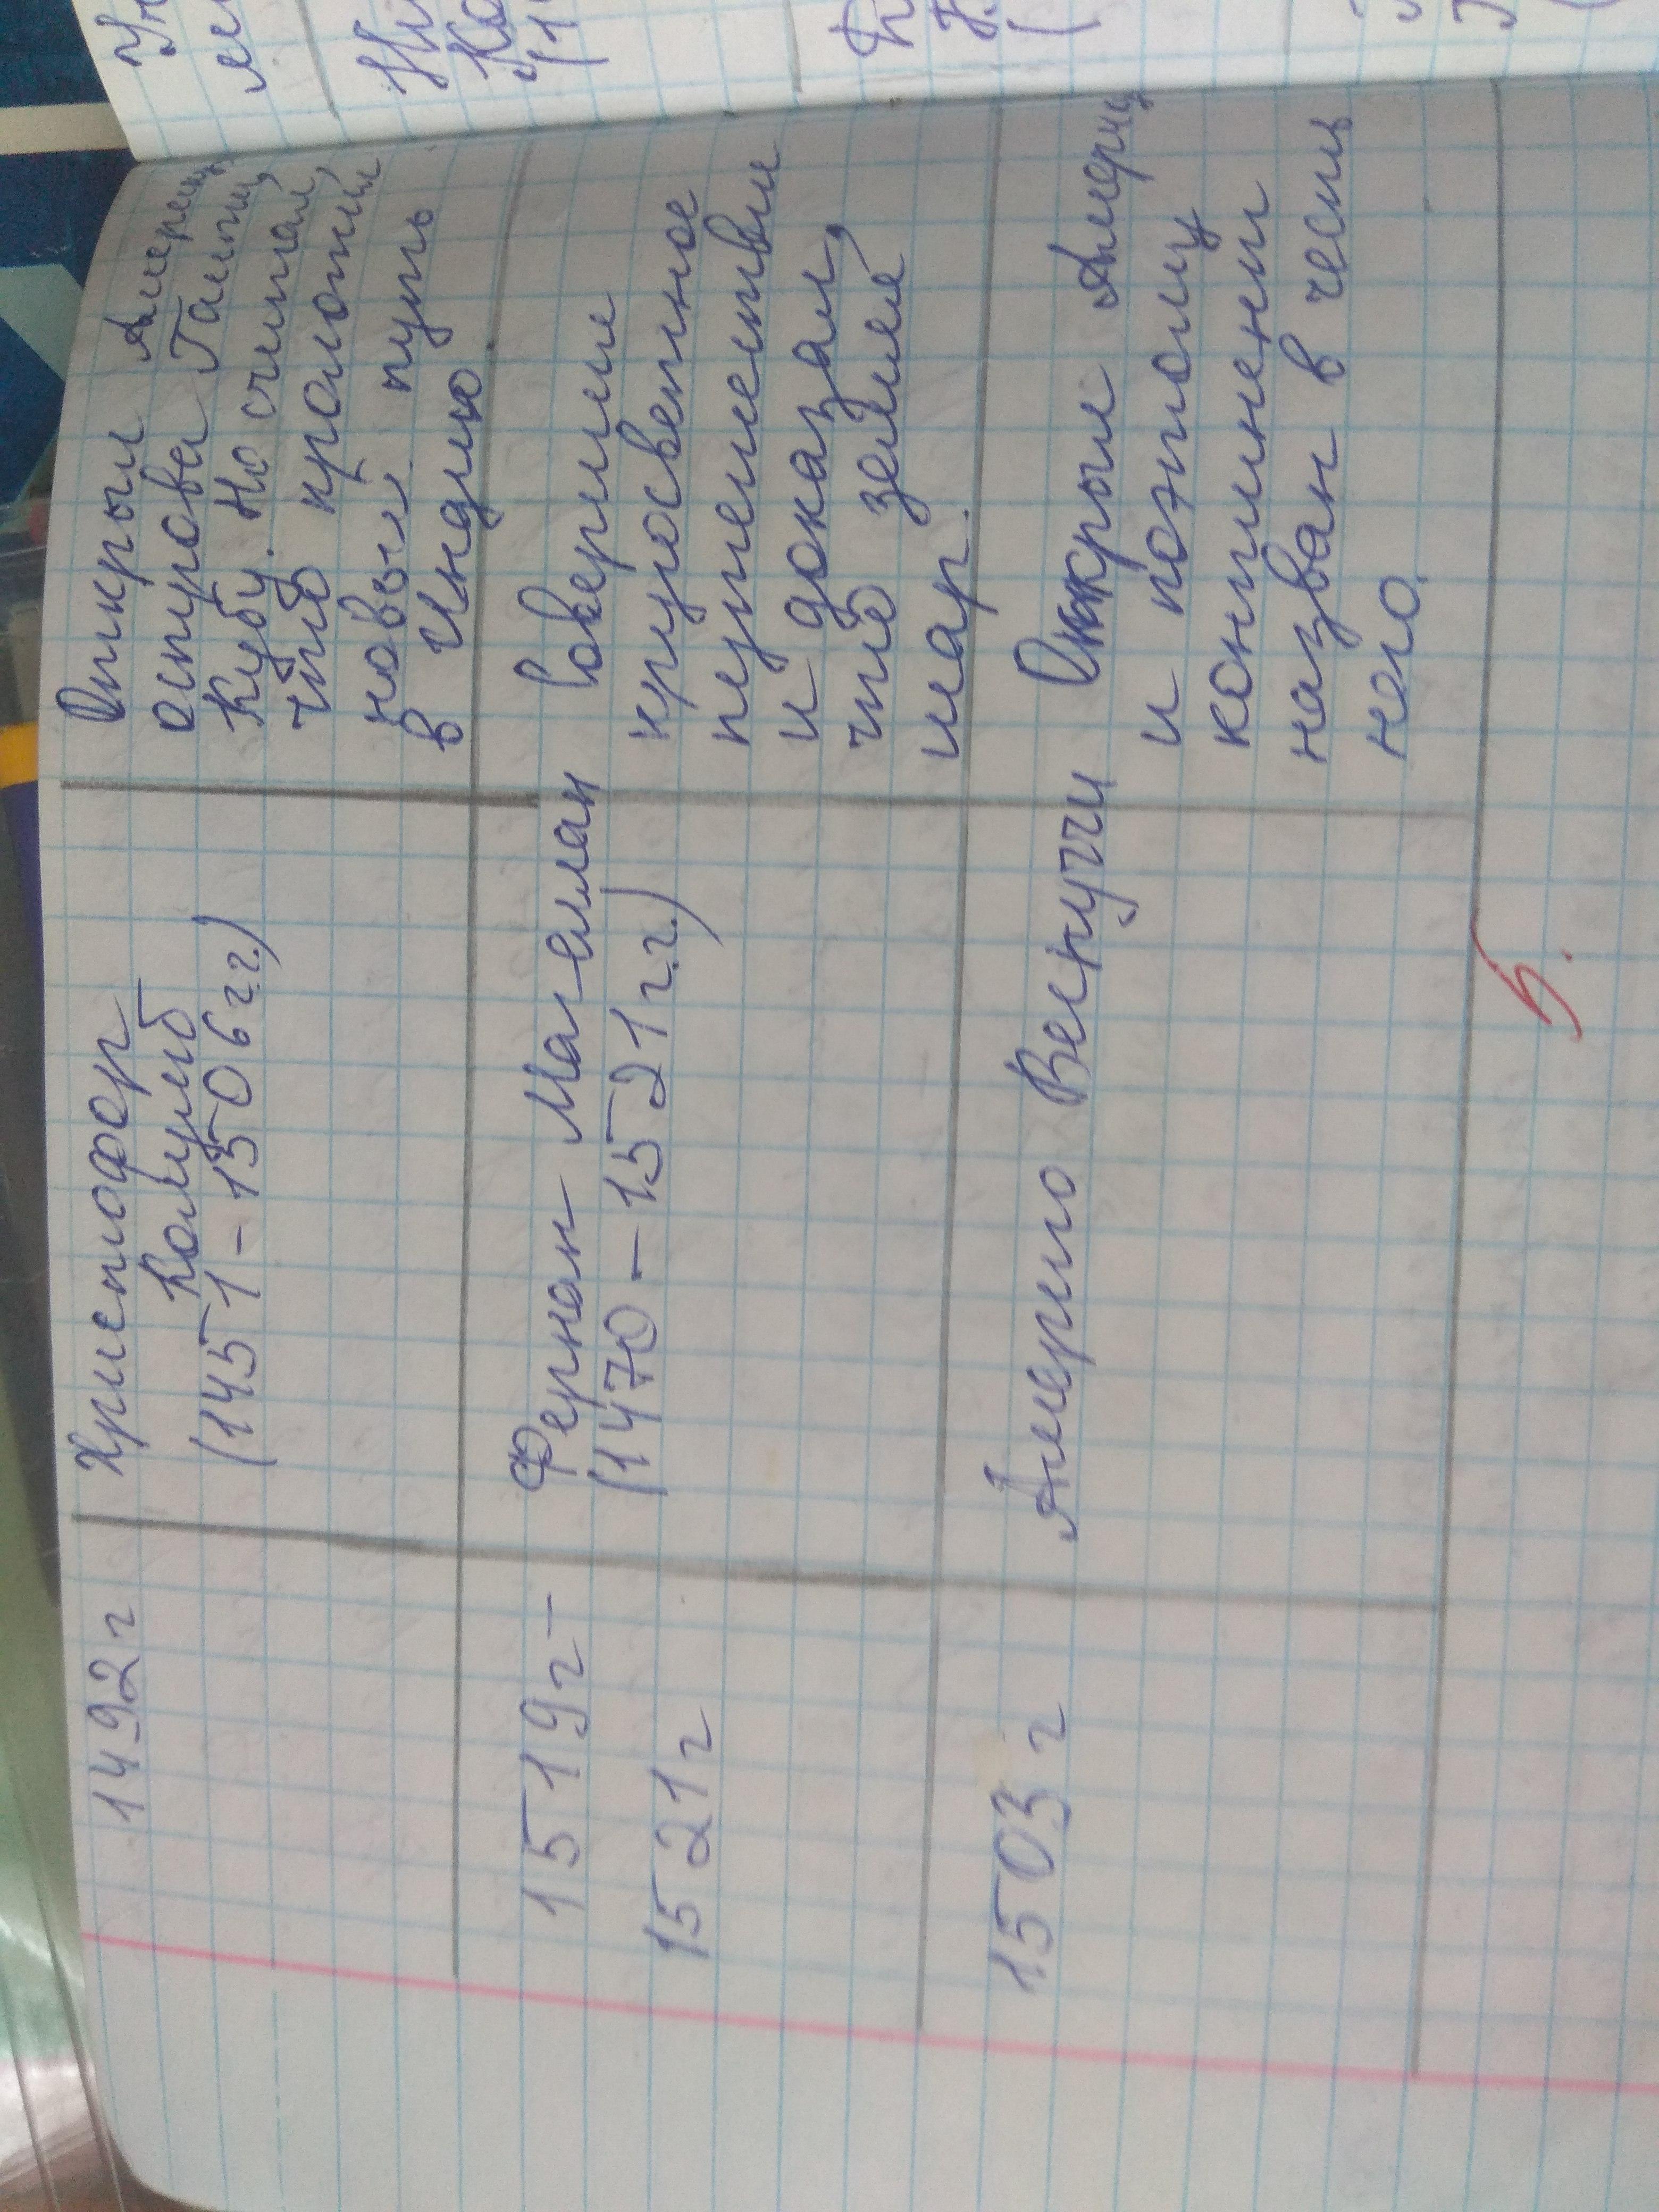 1492 г
Христофор
Колумб
(1451 - 1506 г.г.)
Открыл Америку,
острова Гаити,
Кубу. Но считал,
что проложил
новый путь
в Индию
1519 г -
1521 г
Фернан Магеллан
(1470 - 1521 г.г.)
Совершил
кругосветное
путешествие
и доказал,
что земля
шар.
1503 г
Америго Веспуччи
Открыл Америку
и поэтому
континент
назван в честь
него.
5.